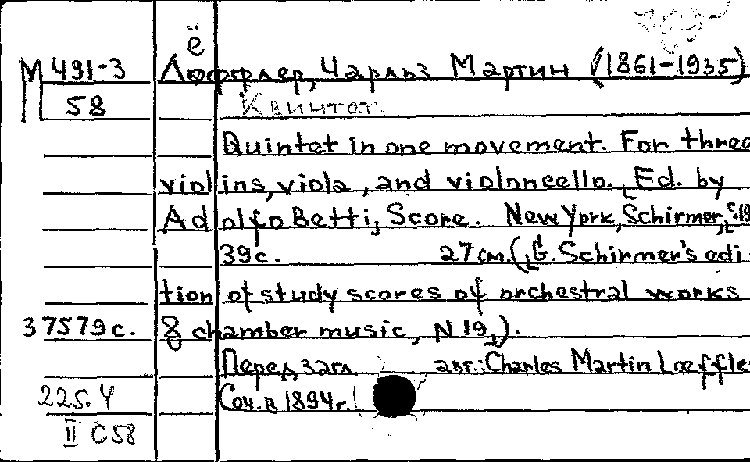 ё
М 491-3 Люффлер, Чарльз Мартин (1861-1935)
58 Квинтет.
Quintet in one movement. For three
violins, viola, and violoncello. Ed. by
Adolfo Betti, Score. New York, Schirmer,
39с. 27 см. (G. Schirmer's edi
tion of study scores of orchestral works
37579с. & chamber music, N 19,).
Перед загл. авт.: Charles Martin Loeffle
225.4 Соч. в 1894г.
II C58